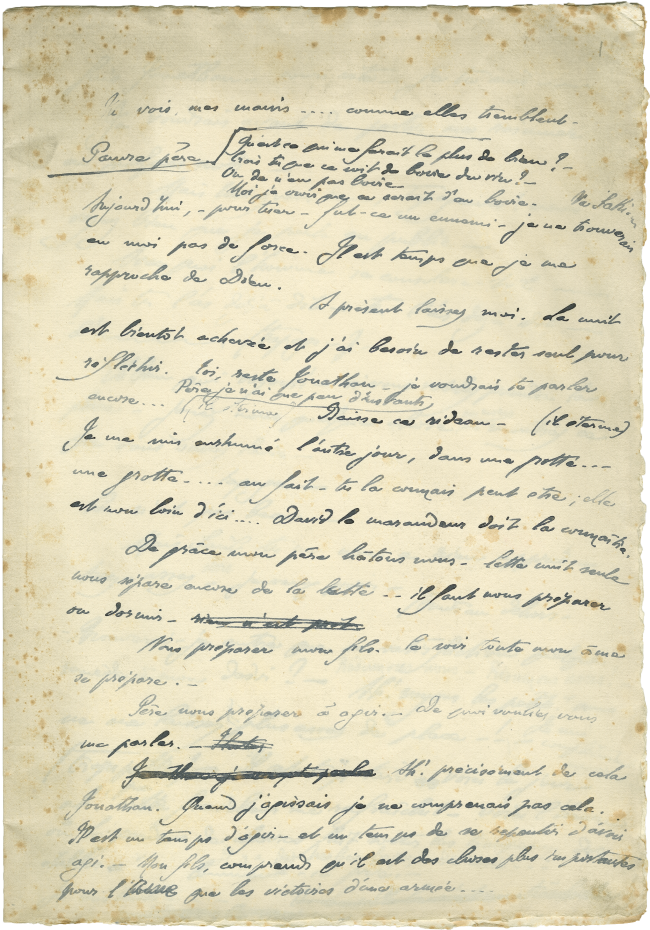 vois mes mains .... comme elles tremblent -
Pauvre père
Qu'est ce qui me ferait le plus de bien ? -
Crois tu que ce soit de boire du vin ? -
Ou de n'en pas boire
Moi je crois que ce serait d'en boire -
Aujourd'hui, - pour tuer - fut-ce un ennemi - je ne trouverais
en moi pas de force. Il est temps que je me
rapproche de Dieu.
A présent laissez moi. La nuit
est bientôt achevée et j'ai besoin de rester seul pour
réfléchir. Toi, reste Jonathan - je voudrais te parler
encore ... Père, je n'ai que peu d'instants
Baisse ce rideau - (il éternue)
Je me suis enrhumé l'autre jour, dans une grotte ...
une grotte .... au fait - tu la connais peut être ; elle
est non loin d'ici .... David le maraudeur doit la connaître.
De grâce mon père hâtons nous - Cette nuit seule
nous sépare encore de la lutte -- il faut nous préparer
ou dormir - rien n'est prêt.
Nous préparer mon fils. Ce soir toute mon âme
se prépare. -
Père nous préparer à agir. - De quoi vouliez vous
me parler. -
Ah! précisément de cela
Jonathan. Quand j'agissais je ne comprenais pas cela.
Il est un temps d'agir - et un temps de se repentir d'avoir
agi. - Mon fils, comprends qu'il est des choses plus importantes
pour l'âme que les victoires d'une armée ....